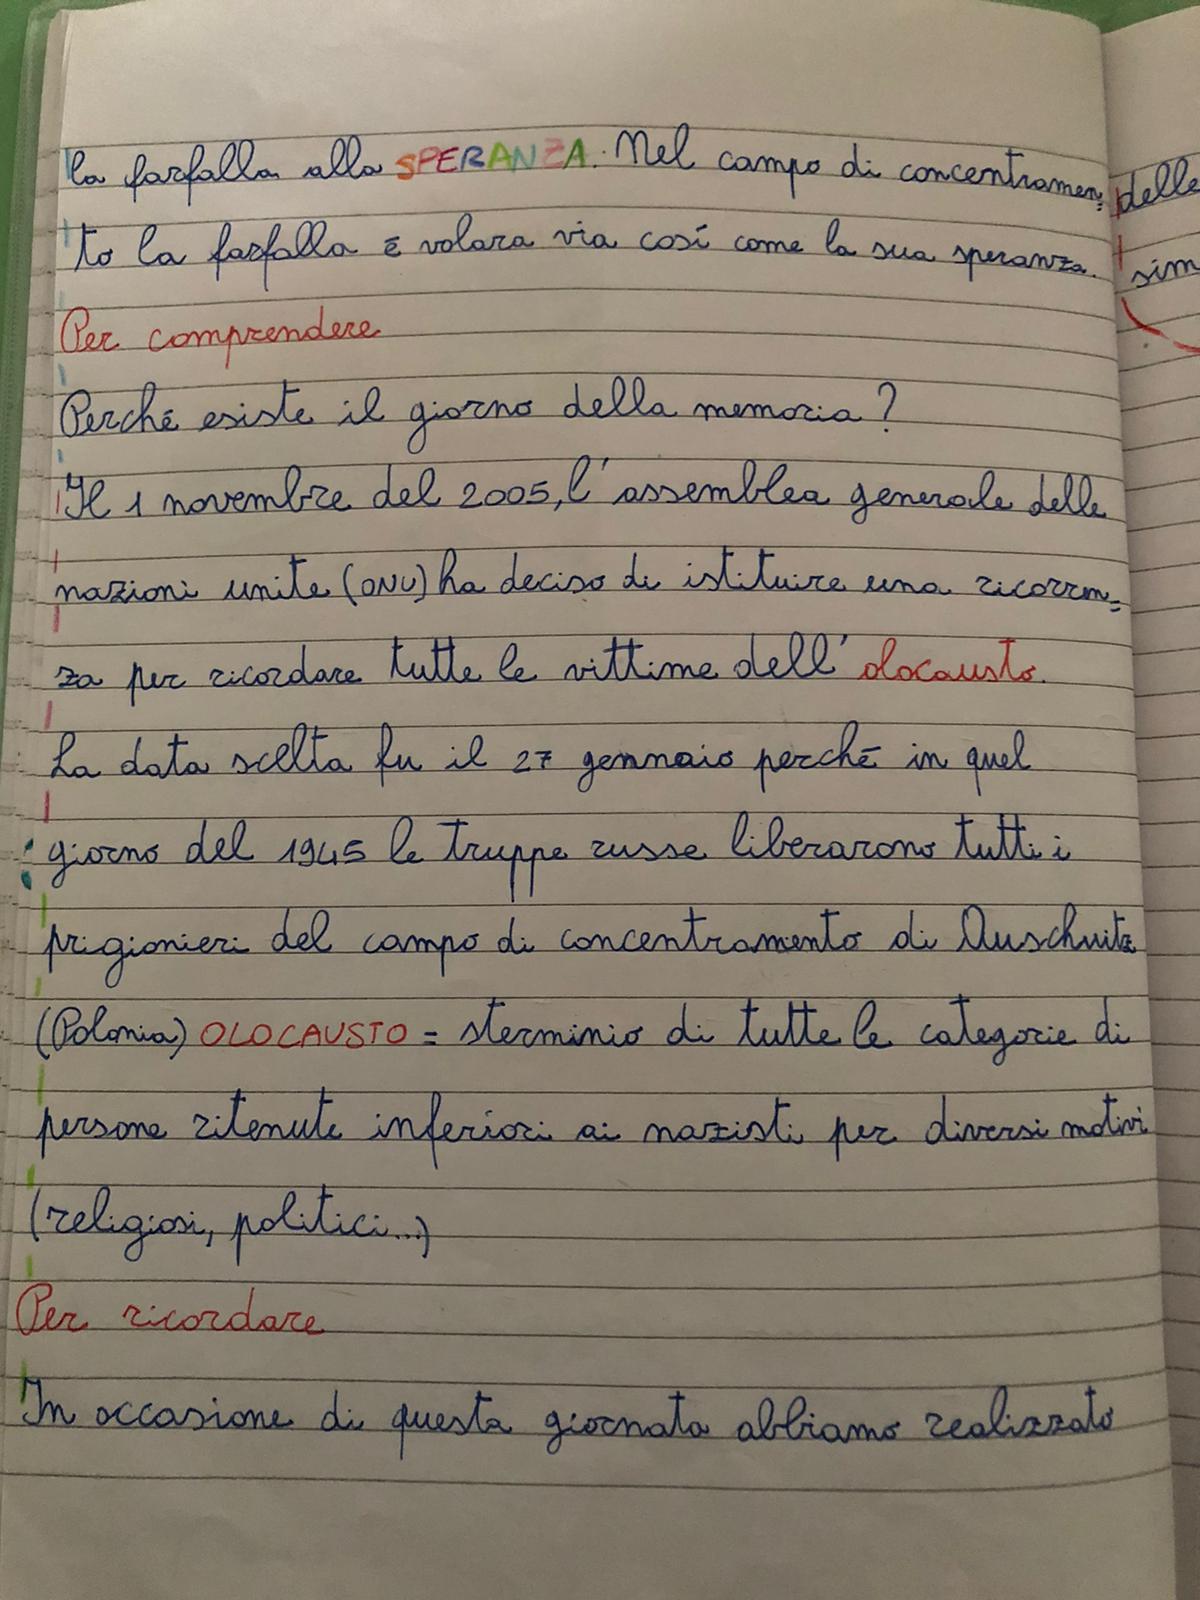 la farfalla alla SPERANZA. Nel campo di concentramen=
to la farfalla è volara via così come la sua speranza.
Per comprendere
Perché esiste il giorno della memoria?
Il 1 novembre del 2005, l'assemblea generale delle
nazioni unite (ONU) ha deciso di istituire una ricorren=
za per ricordare tutte le vittime dell'olocausto.
La data scelta fu il 27 gennaio perché in quel
giorno del 1945 le truppe russe liberarono tutti i
prigionieri del campo di concentramento di Auschwitz
(Polonia) OLOCAUSTO = sterminio di tutte le categorie di
persone ritenute inferiori ai nazisti per diversi motivi
(religiosi, politici...)
Per ricordare
In occasione di questa giornata abbiamo realizzato
delle
sim